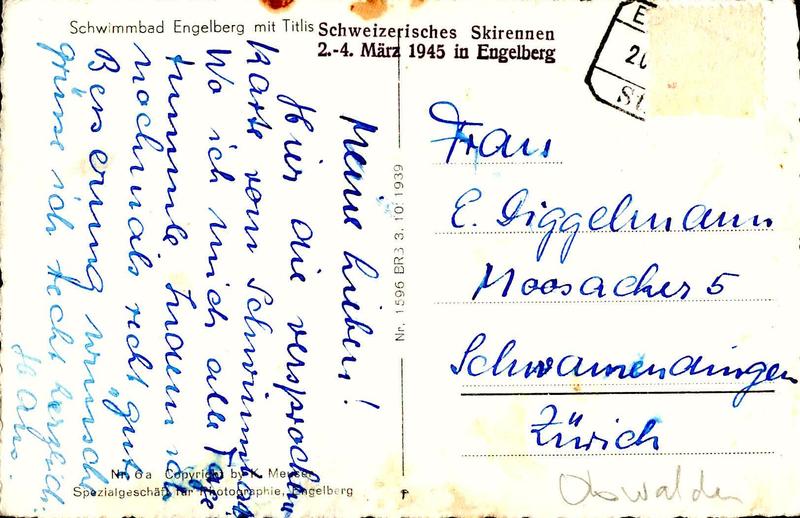 Schwimmbad Engelberg mit Titlis
Schweizerisches Skirennen
2.-4. März 1945 in Engelberg
Meine Lieben!
Hier die versprochene
Karte vom Schwimmbad
Wo ich mich alle Tage
tummle. Indem ich
nochmals recht gute
Besserung wünsche
grüsse ich recht herzlich
Hans.
Nr. 1596 BRB 3. 10. 1939
Frau
E. Diggelmann
Moosacker 5
Schwamendingen
Zürich
Obwalden
Nr. 6a Copyright by K. Meuser
Spezialgeschäft für Photographie, Engelberg
P